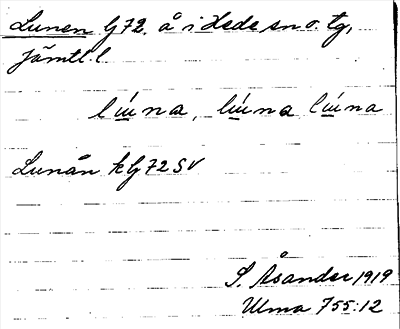 Lunen G72. å i Hede sn o. tg,
Jämtl. l.
lɯ́na, lɯ́na lɯ́na
Lunån kG72SV
S. Åsander 1919
Ulma 755:12